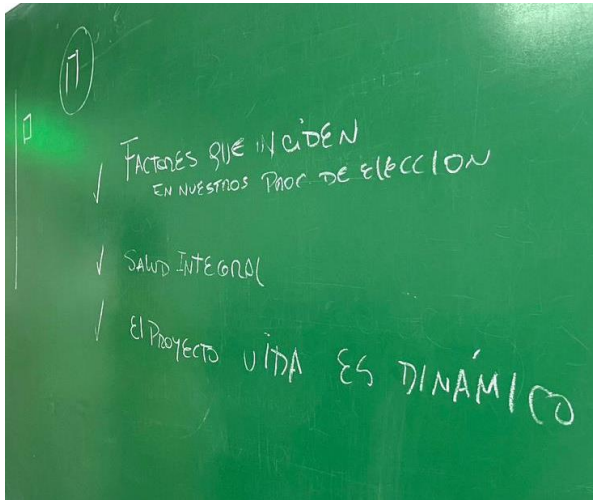 FACTORES QUE INCIDEN
EN NUESTROS PROC. DE ELECCION
SALUD INTEGRAL
El PROYECTO VIDA ES DINÁMICO